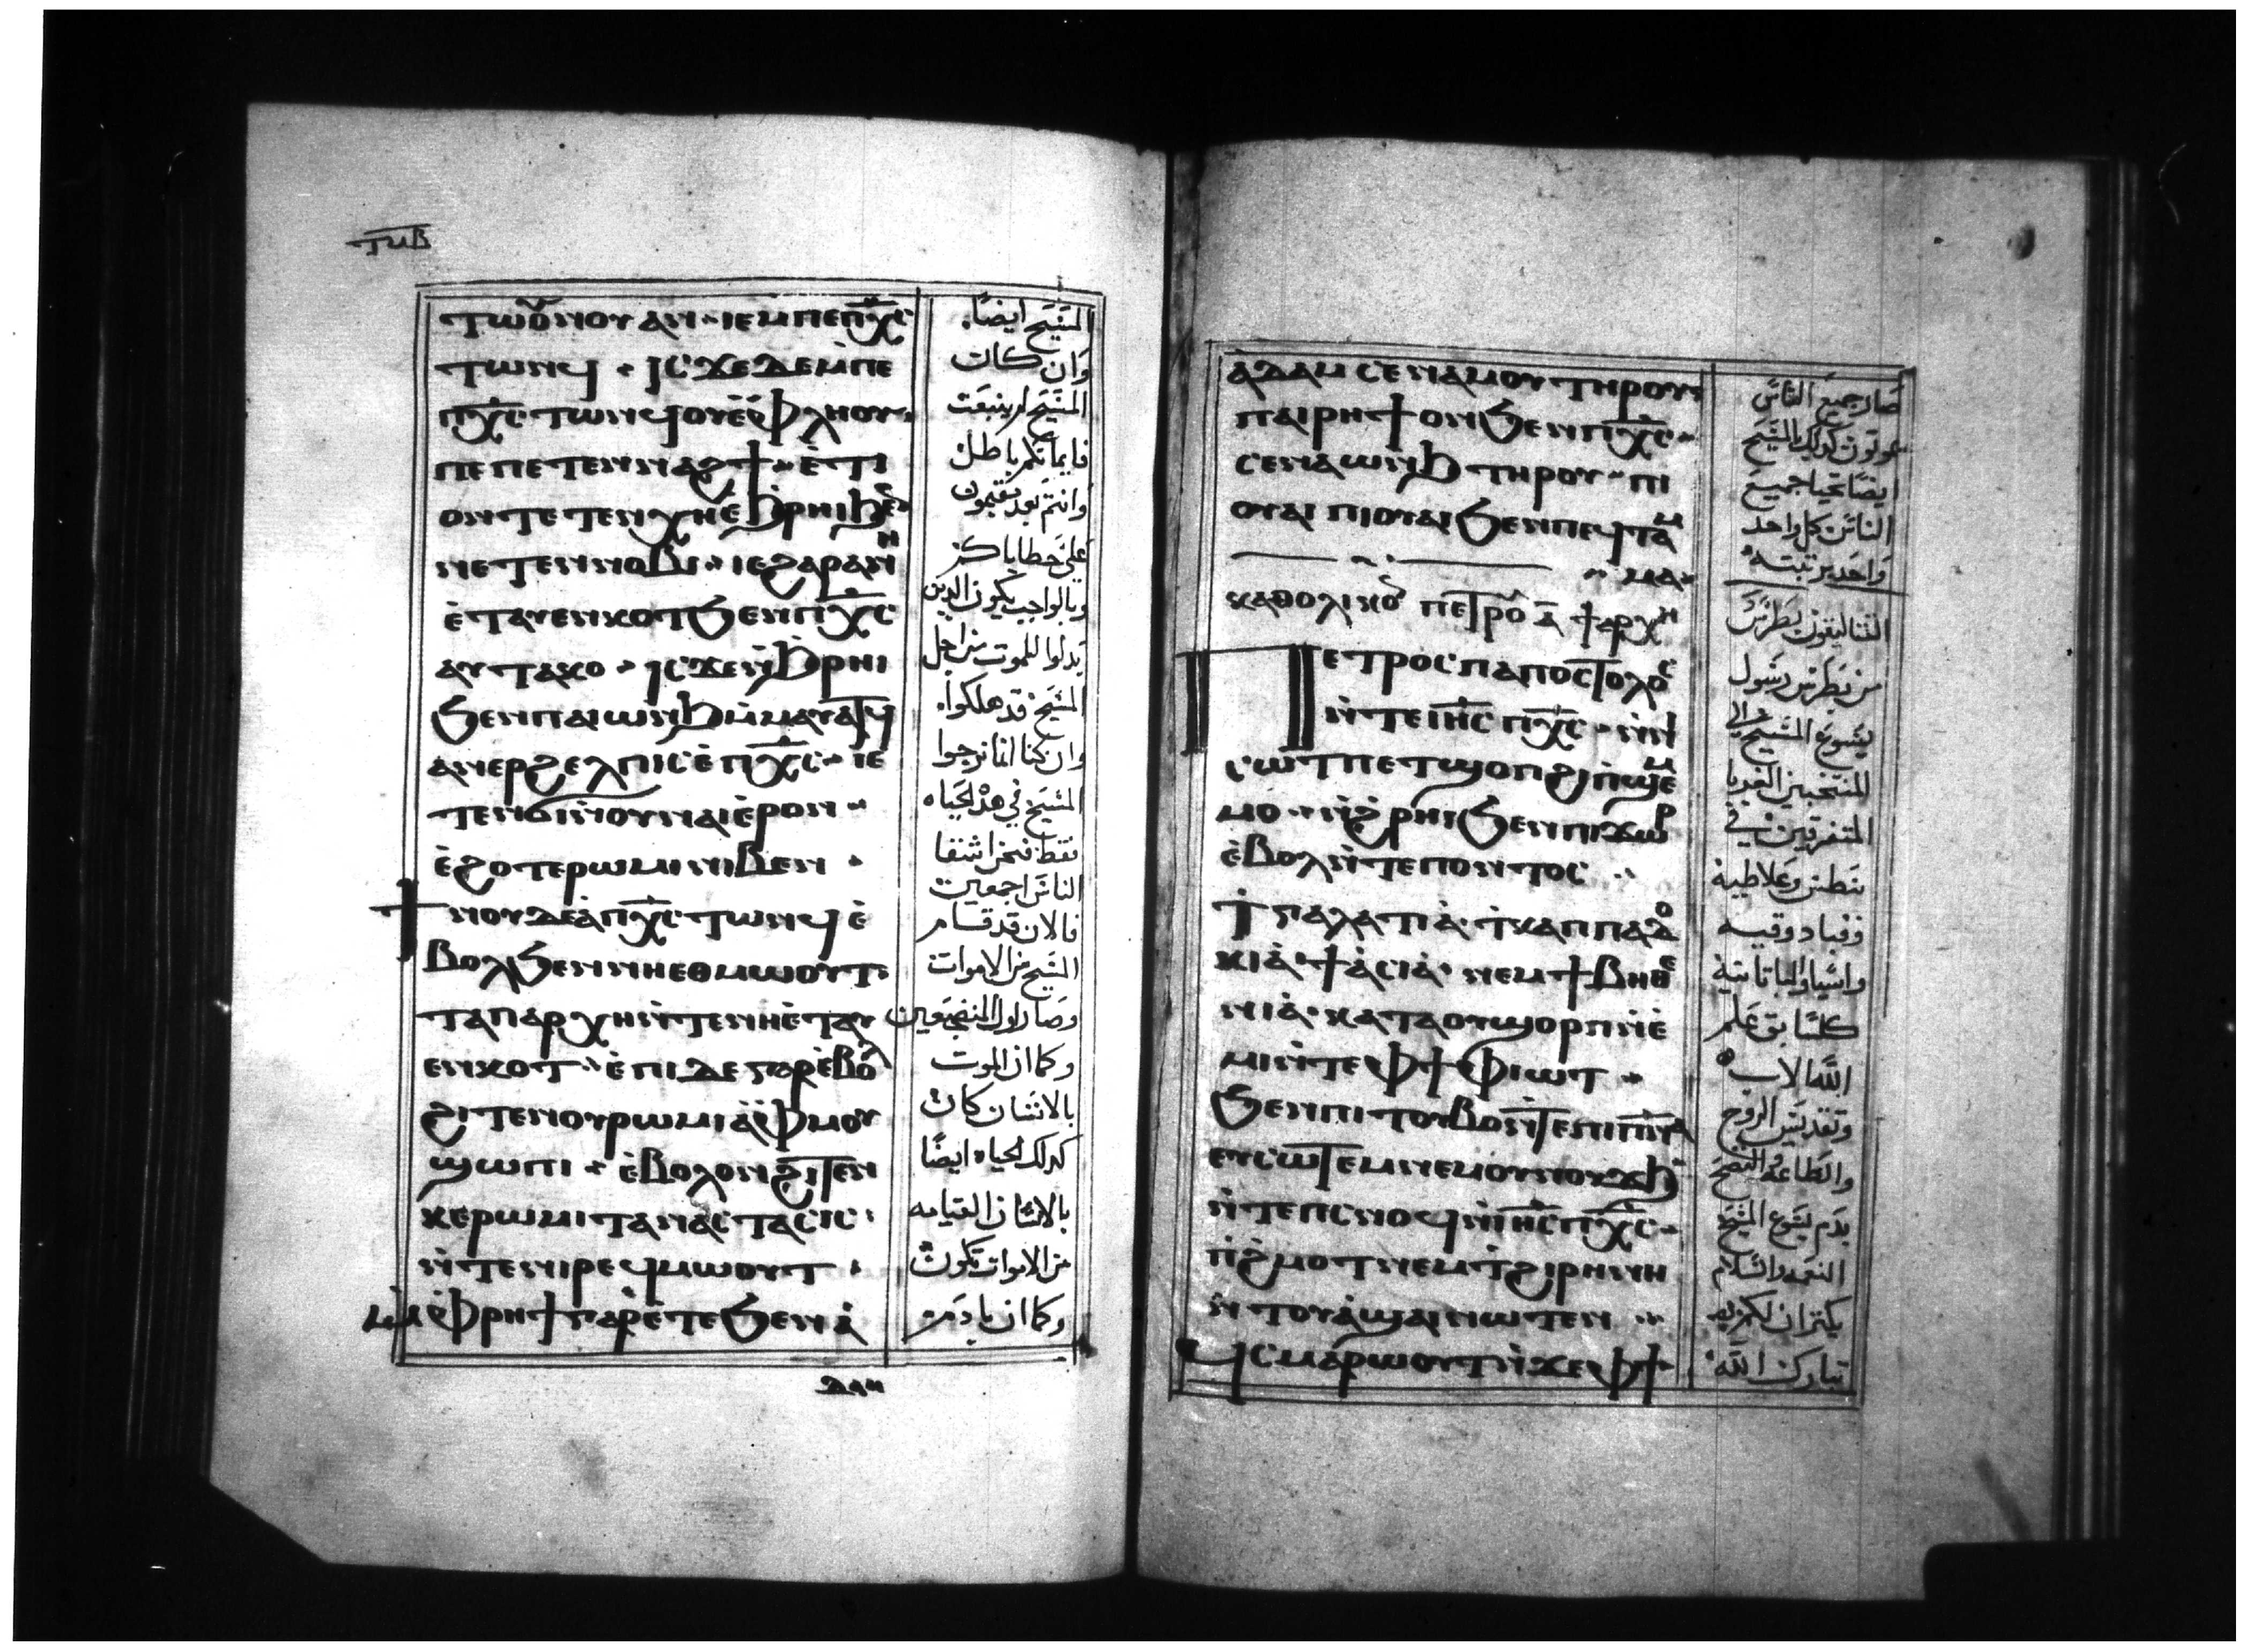 ⲧⲙⲃ
ⲧⲱⲟⲩⲛⲟⲩ ⲁⲛ · ⲓⲉ ⲙⲡⲉ ⲡⲭ̅ⲥ̅
ⲧⲱⲛϥ · ⲓⲥϫⲉ ⲇⲉ ⲙ̀ⲡⲉ
ⲡⲭ̅ⲥ̅ ⲧⲱⲛϥ ⲟⲩⲉ̀ⲫⲗⲏⲟⲩ
ⲡⲉ ⲡⲉⲧⲉⲛⲛⲁϩϯ · ⲉ̀ⲧⲓ
ⲟⲛ ⲧⲉⲧⲉⲛⲭⲏ ⲉ̀ϧⲣⲏⲓ ϧⲉⲛ
ⲛⲉⲧⲉⲛⲛⲟⲃⲓ · ⲓⲉ ϩⲁⲣⲁ ⲛⲏ
ⲉ̀ⲧⲁⲩⲉⲛⲕⲟⲧ ϧⲉⲛ ⲡⲭ̅ⲥ̅
ⲁⲩⲧⲁⲕⲟ · ⲓⲥϫⲉ ⲛ̀ϧⲣⲏⲓ
ϧⲉⲛ ⲡⲁⲓⲱⲛϧ ⲙ̀ⲙⲁⲩⲁⲧϥ
ⲁⲛⲉⲣϩⲉⲗⲡⲓⲥ ⲉ̀ⲡⲭ̅ⲥ̅ · ⲓⲉ
ⲧⲉⲛϭⲓⲛ̀ⲟⲩⲛⲁⲓ ⲉ̀ⲣⲟⲛ ·
ⲉ̀ϩⲟⲧⲉ ⲣⲱⲙⲓ ⲛⲓⲃⲉⲛ ·
ϯⲛⲟⲩ ⲇⲉ ⲁ̀ⲡⲭ̅ⲥ̅ ⲧⲱⲛϥ ⲉ̀
ⲃⲟⲗ ϧⲉⲛ ⲛⲏⲉⲑⲙⲱⲟⲩⲧ
ⲧⲁⲡⲁⲣⲭⲏ ⲛ̀ⲧⲉ ⲛⲏⲉ̀ⲧⲁⲩ
ⲉⲛⲕⲟⲧ · ⲉ̀ⲡⲓⲇⲉ ⲅⲁⲣ ⲉ̀ⲃⲟⲗ
ϩⲓⲧⲉⲛ ⲟⲩⲣⲱⲙⲓ ⲁ̀ⲫⲙⲟⲩ
ϣⲱⲡⲓ · ⲉ̀ⲃⲟⲗ ⲟⲛ ϩⲓⲧⲉⲛ
ⲕⲉⲣⲱⲙⲓ ⲧⲁⲛⲁⲥⲧⲁⲥⲓⲥ
ⲛ̀ⲧⲉ ⲛⲓⲣⲉϥⲙⲱⲟⲩⲧ ·
ⲙ̀ⲫⲣⲏϯ ⲅⲁⲣ ⲉ̀ⲧⲉ ϧⲉⲛ ⲁ̀
ⲇⲁⲙ
المسيح ايضًا
وان كان
المسيح لم ينبعث
فايمانكم باطل
وانتم بعد مقيمون
على خطاياكم
وبالواجب يكون الدين
بدلوا للموت من اجل
المسيح قد هلكوا
وان كنا انما نرجوا
المسيح في هذه الحياه
فقط فنحن اشقا
الناس اجمعين
فالان قد قام
المسيح من الاموات
وصار اول المضجعين
وكما ان الموت
بالانسان كان
كذلك الحياه ايضًا
بالانسان القيامه
من الاموات تكون
وكما ان بادم
ⲁ̀ⲇⲁⲙ ⲥⲉⲛⲁⲙⲟⲩ ⲧⲏⲣⲟⲩ
ⲡⲁⲓⲣⲏϯ ⲟⲛ ϧⲉⲛ ⲡⲭ̅ⲥ̅ ·
ⲥⲉⲛⲁⲱⲛϧ ⲧⲏⲣⲟⲩ · ⲡⲓ
ⲟⲩⲁⲓ ⲡⲓⲟⲩⲁⲓ ϧⲉⲛ ⲡⲉϥⲧⲁⲅ
ⲙⲁ
ⲕⲁⲑⲟⲗⲓⲕⲟⲛ ⲡⲉⲧⲣⲟⲩ ⲁ̅ ϯⲁⲣⲭⲏ
ⲡⲉⲧⲣⲟⲥ ⲡⲁⲡⲟⲥⲧⲟⲗⲟⲥ
ⲛ̀ⲧⲉ ⲓⲏ̅ⲥ̅ ⲡⲭ̅ⲥ̅ · ⲛ̀ⲛⲓ
ⲥⲱⲧⲡ ⲉⲧϣⲟⲡ ϩⲓ ⲡ̀ϣⲉⲙ
ⲙⲟ · ⲛ̀ϩ̀ⲣⲏⲓ ϧⲉⲛ ⲡⲓϫⲱⲣ
ⲉ̀ⲃⲟⲗ ⲛ̀ⲧⲉ ⲡⲟⲛⲧⲟⲥ ··
ϯⲅⲁⲗⲁⲧⲓⲁ̀ · ϯⲕⲁⲡⲡⲁⲇⲟ
ⲕⲓⲁ̀ · ϯⲁ̀ⲥⲓⲁ̀ · ⲛⲉⲙ ϯⲃⲏⲑⲉ
ⲛⲓⲁ̀ · ⲕⲁⲧⲁ ⲟⲩϣⲟⲣⲡ ⲛ̀ⲉ̀
ⲙⲓ ⲛ̀ⲧⲉ ⲫϯ ⲫⲓⲱⲧ ·
ϧⲉⲛ ⲡⲓⲧⲟⲩⲃⲟ ⲛ̀ⲧⲉ ⲡⲓⲡⲛ̅ⲁ̅
ⲉⲩⲥⲱⲧⲉⲙ ⲛⲉⲙ ⲟⲩⲛⲟⲩϫϧ
ⲛ̀ⲧⲉ ⲡⲥⲛⲟϥ ⲛ̀ⲓⲏ̅ⲥ̅ ⲡⲭ̅ⲥ̅ ·
ⲡ̀ϩ̀ⲙⲟⲧ ⲛⲉⲙ ⲧ̀ϩⲓⲣⲏⲛⲏ
ⲛ̀ⲧⲟⲩⲁ̀ϣⲁⲓ ⲛⲱⲧⲉⲛ ··
ϥⲥⲙⲁⲣⲱⲟⲩⲧ ⲛ̀ϫⲉ ⲫϯ
صار جميع الناس
يموتون كذلك بالمسيح
ايضًا تحيا جميع
الناس كل واحد
واحد برتبته
القتاليقون بطرس
من بطرس رسول
يسوع المسيح الي
المنتخبين الغربا
المتفرقين في
بنطس وغلاطيه
وقبادوقيه
واسيا والباتانيه
كسابق علم
الله الاب
وتقديس الروح
والطاعه والنضح
بدم يسوع المسيح
النعمه والسلام
يكثران لكم
تبارك الله